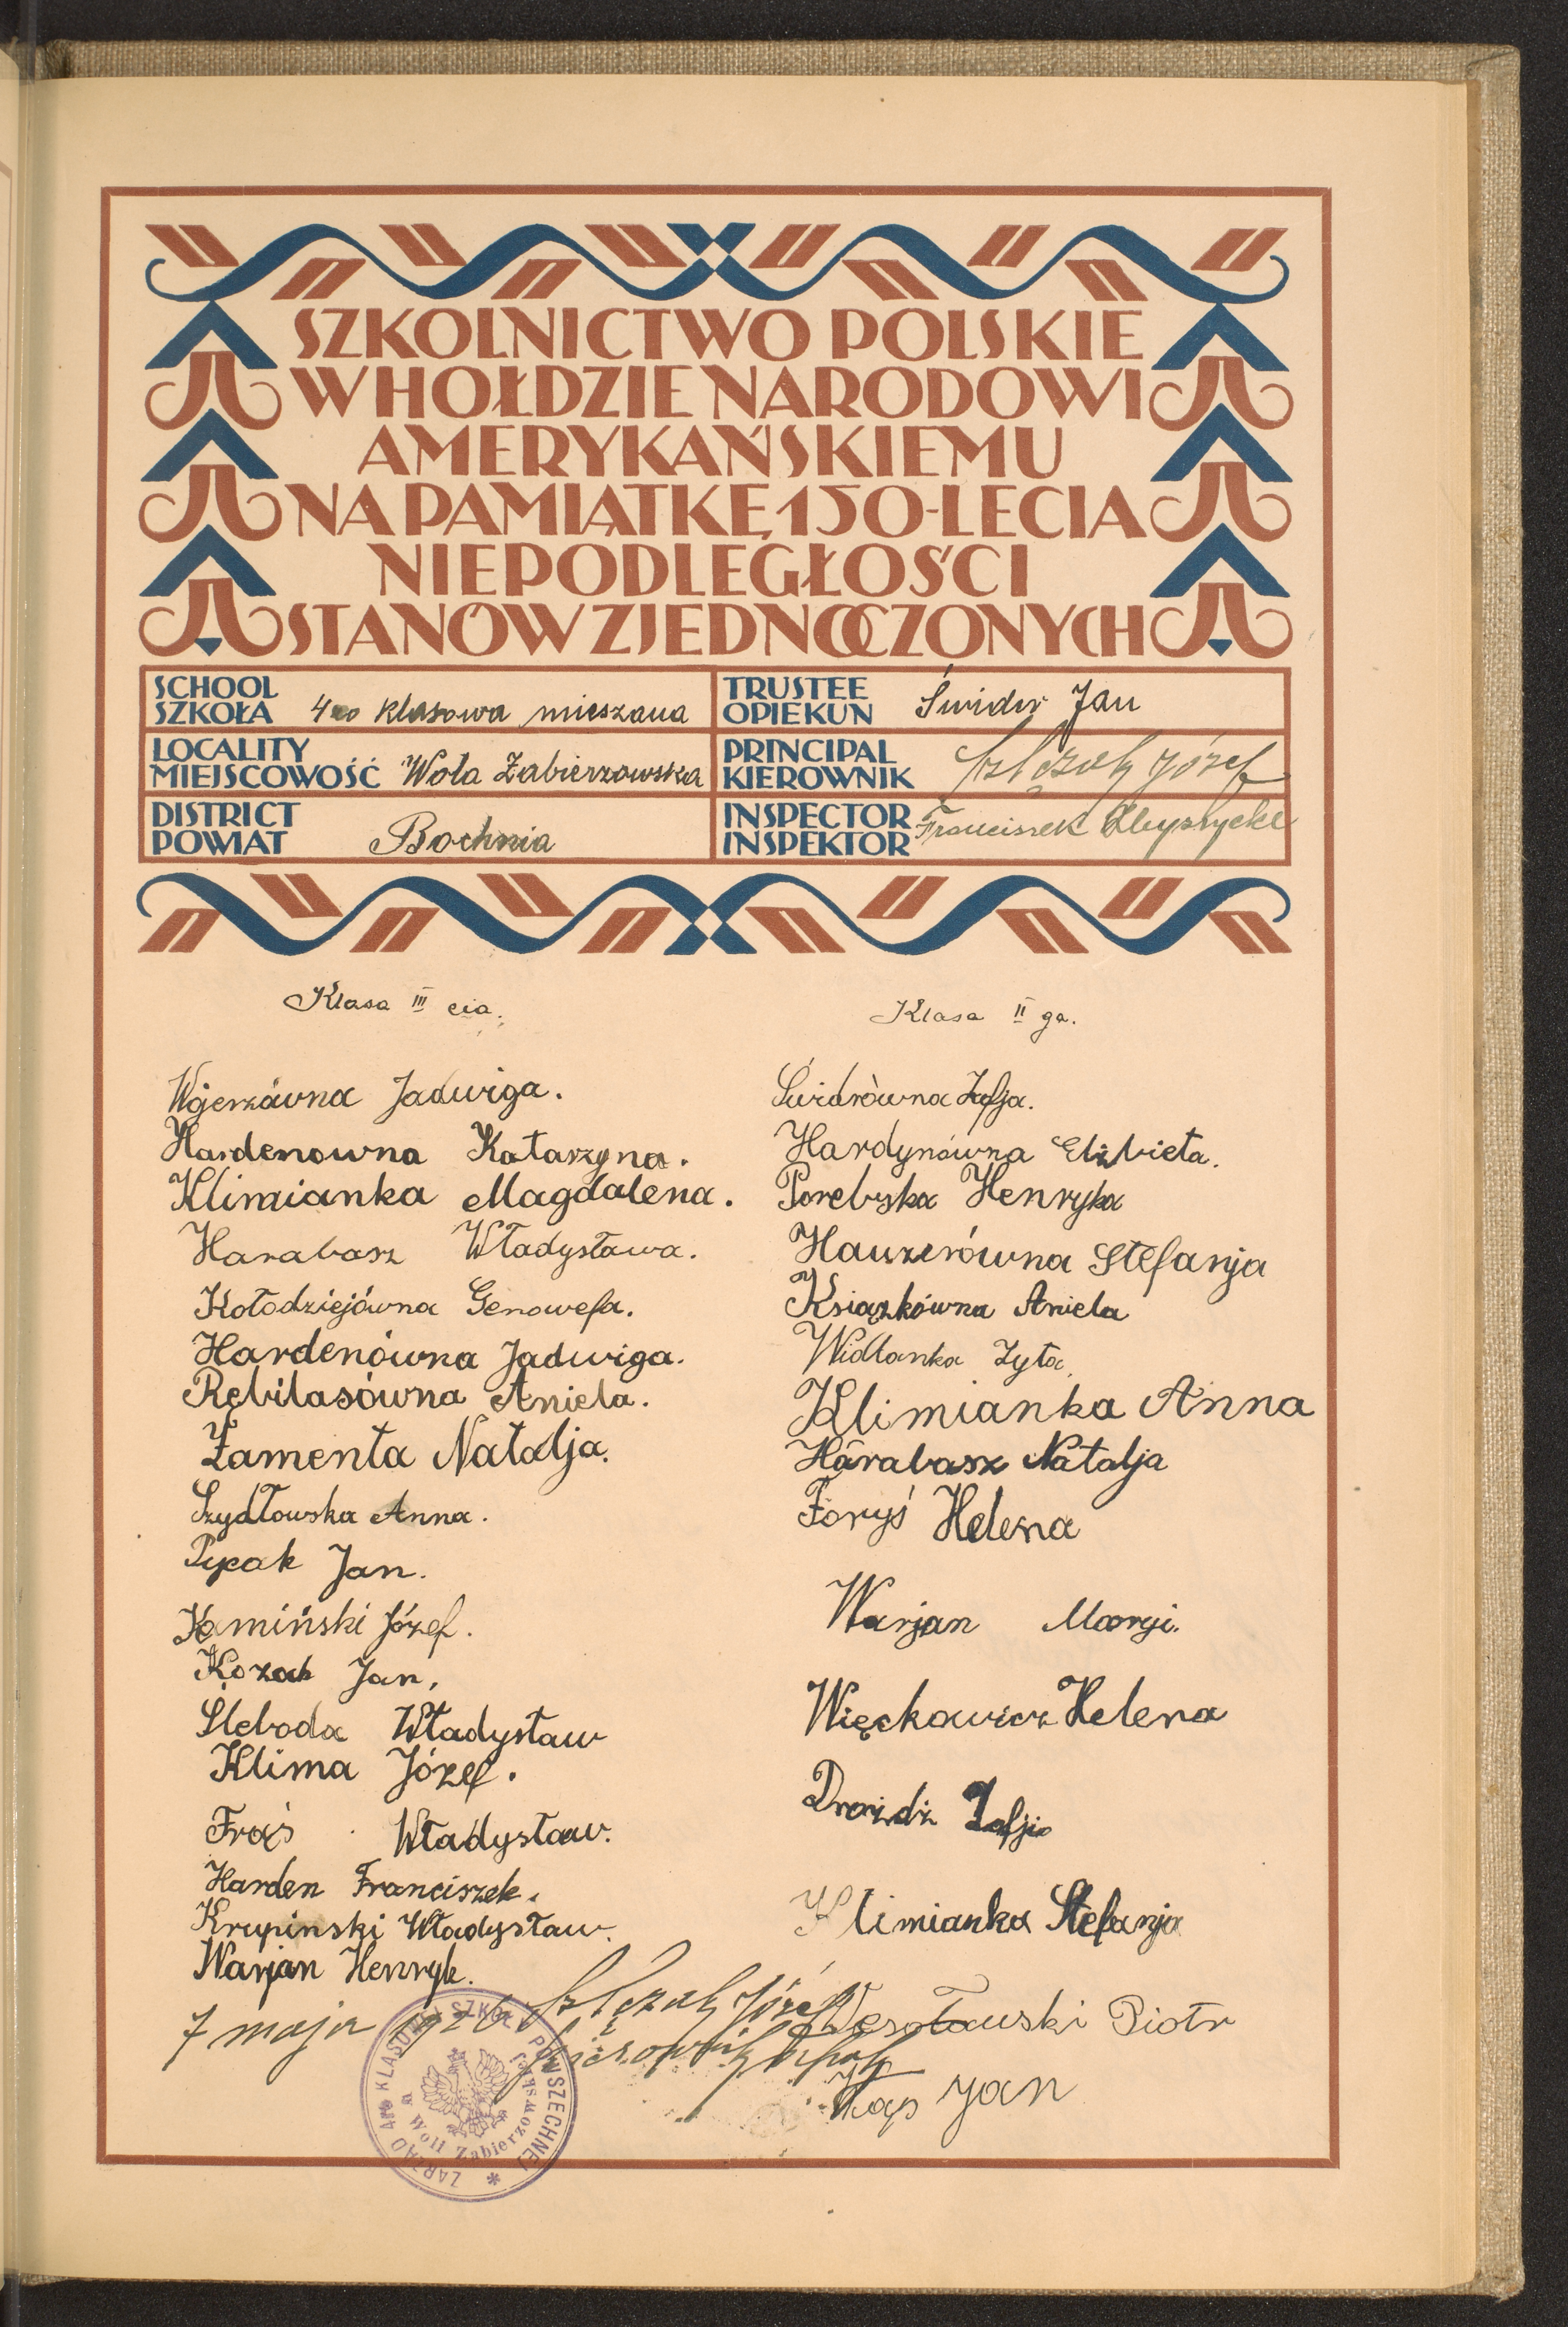 SZKOLNICTWO POLSKIE
W HOŁDZIE NARODOWI
AMERYKAŃSKIEMU
NA PAMIĄTKĘ 150-LECIA
NIEPODLEGŁOŚCI
STANÓW ZJEDNOCZONYCH
SCHOOL
SZKOŁA 4ro klasowa mieszana
LOCALITY
MIEJSCOWOŚĆ Wola Zabierzowska
DISTRICT
POWIAT Bochnia
TRUSTEE
OPIEKUN Świder Jan
PRINCIPAL
KIEROWNIK Józef
INSPECTOR
INSPEKTOR Franciszek
Klasa III cia.
Wjerzówna Jadwiga.
Hardenowna Katarzyna.
Klimianka Magdalena.
Harabasz Władysława.
Kołodziejówna Genowefa.
Hardenówna Jadwiga.
Rębilasówna Aniela.
Zamenta Natalja.
Szydłowska Anna.
Jan.
Kamiński Józef.
Kozak Jan,
Śleboda Władysław
Klima Józef.
Fraś Władysław.
Harden Franciszek.
Krupinski Władysław.
Warjan Henryk.
7 maja 1926
Józef
Klasa II ga.
Świdrówna Zofja.
Hardynówna Elżbieta.
Porebska Henryka
Hauzerówna Stefanja
Książkówna Aniela
Widłanka Zyta
Klimianka Anna
Harabasz Natalja
Foryś Helena
Warjan Maryi.
Więckowicz Helena
Drożdż Zofja
Klimianka Stefanja
Wesołowski Piotr
Kap Jan
ZARZĄD 4ro KLASOWEJ SZKOŁY POWSZECHNEJ
w Woli Zabierzowskiej